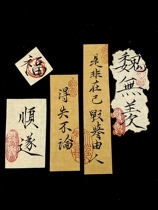 福
順遂
得失不論
是非在己 毀譽由人
魏無羨